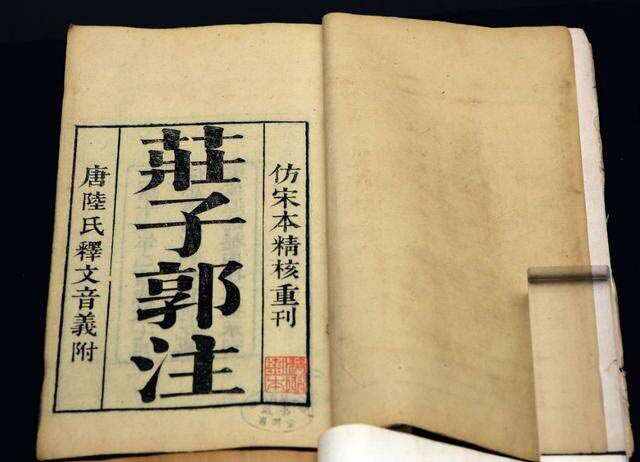 仿宋本精核重刊
莊子郭注
唐陸氏釋文音義附